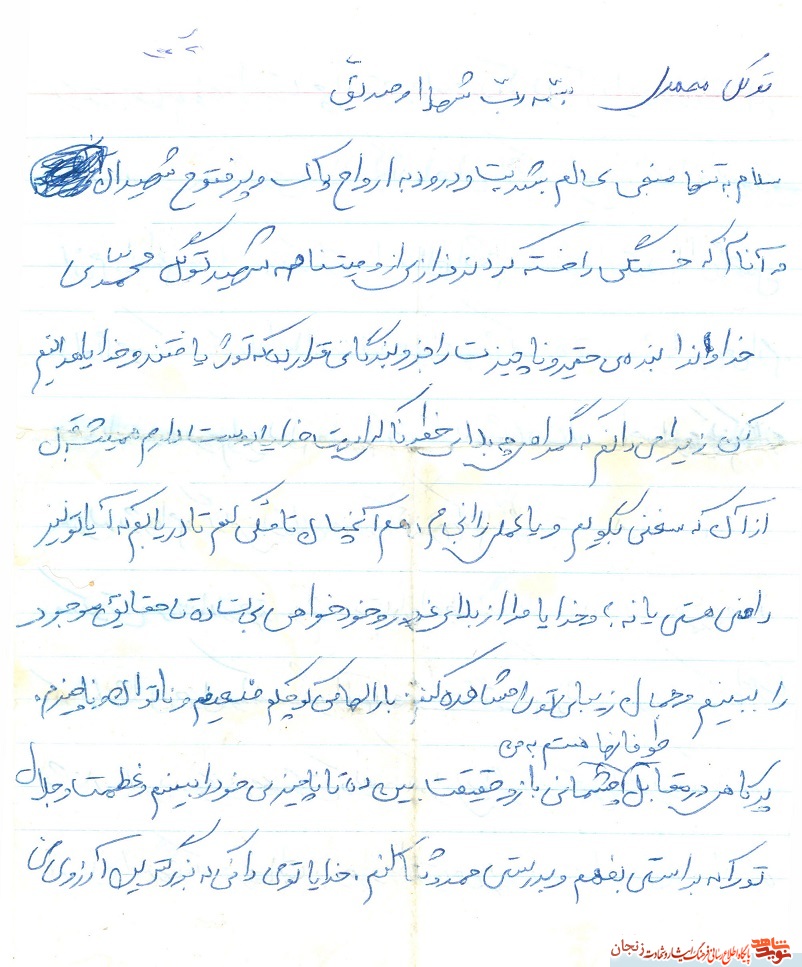 توکل محمدی بسمه رب شهدا و صدیق
سلام به تنها منجی عالم بشریت و درود به ارواح پاک و پرفتوح شهیدان
که آنان که خستگی را خسته کردند فرازی از وصیتنامه شهید توکل محمدی
خداوندا بنده‌ی حقیر و ناچیزت را جزو بندگانی قرار ده که تو را یافتند و خدایا هدایتم
کن زیرا می دانم که گمراهی چه بلای خطرناکی است خدایا دوست دارم همیشه قبل
از آن که سخنی بگویم و یا عملی را انجام دهم آنچنان تأملی کنم تا دریابم که آیا تو نیز
راضی هستی یا نه؟ و خدایا مرا از بلای غرور و خودخواهی نجات ده تا حقایق موجود
را ببینم و جمال زیبای تو را مشاهده کنم. بارالها من کوچکم ضعیفم و ناتوان و ناچیزم.
پرکاهی در مقابل طوفانها هستم به من چشمانی باز و حقیقت بین ده تا ناچیزی خود را ببینم و عظمت و جلال
تو را به راستی بفهم و بدرستی حمد و ثنا کنم. خدایا تو می دانی که بزرگترین آرزوی من
نوید شاهد پایگاه اطلاع رسانی فرهنگ ایثار و شهادت زنجان